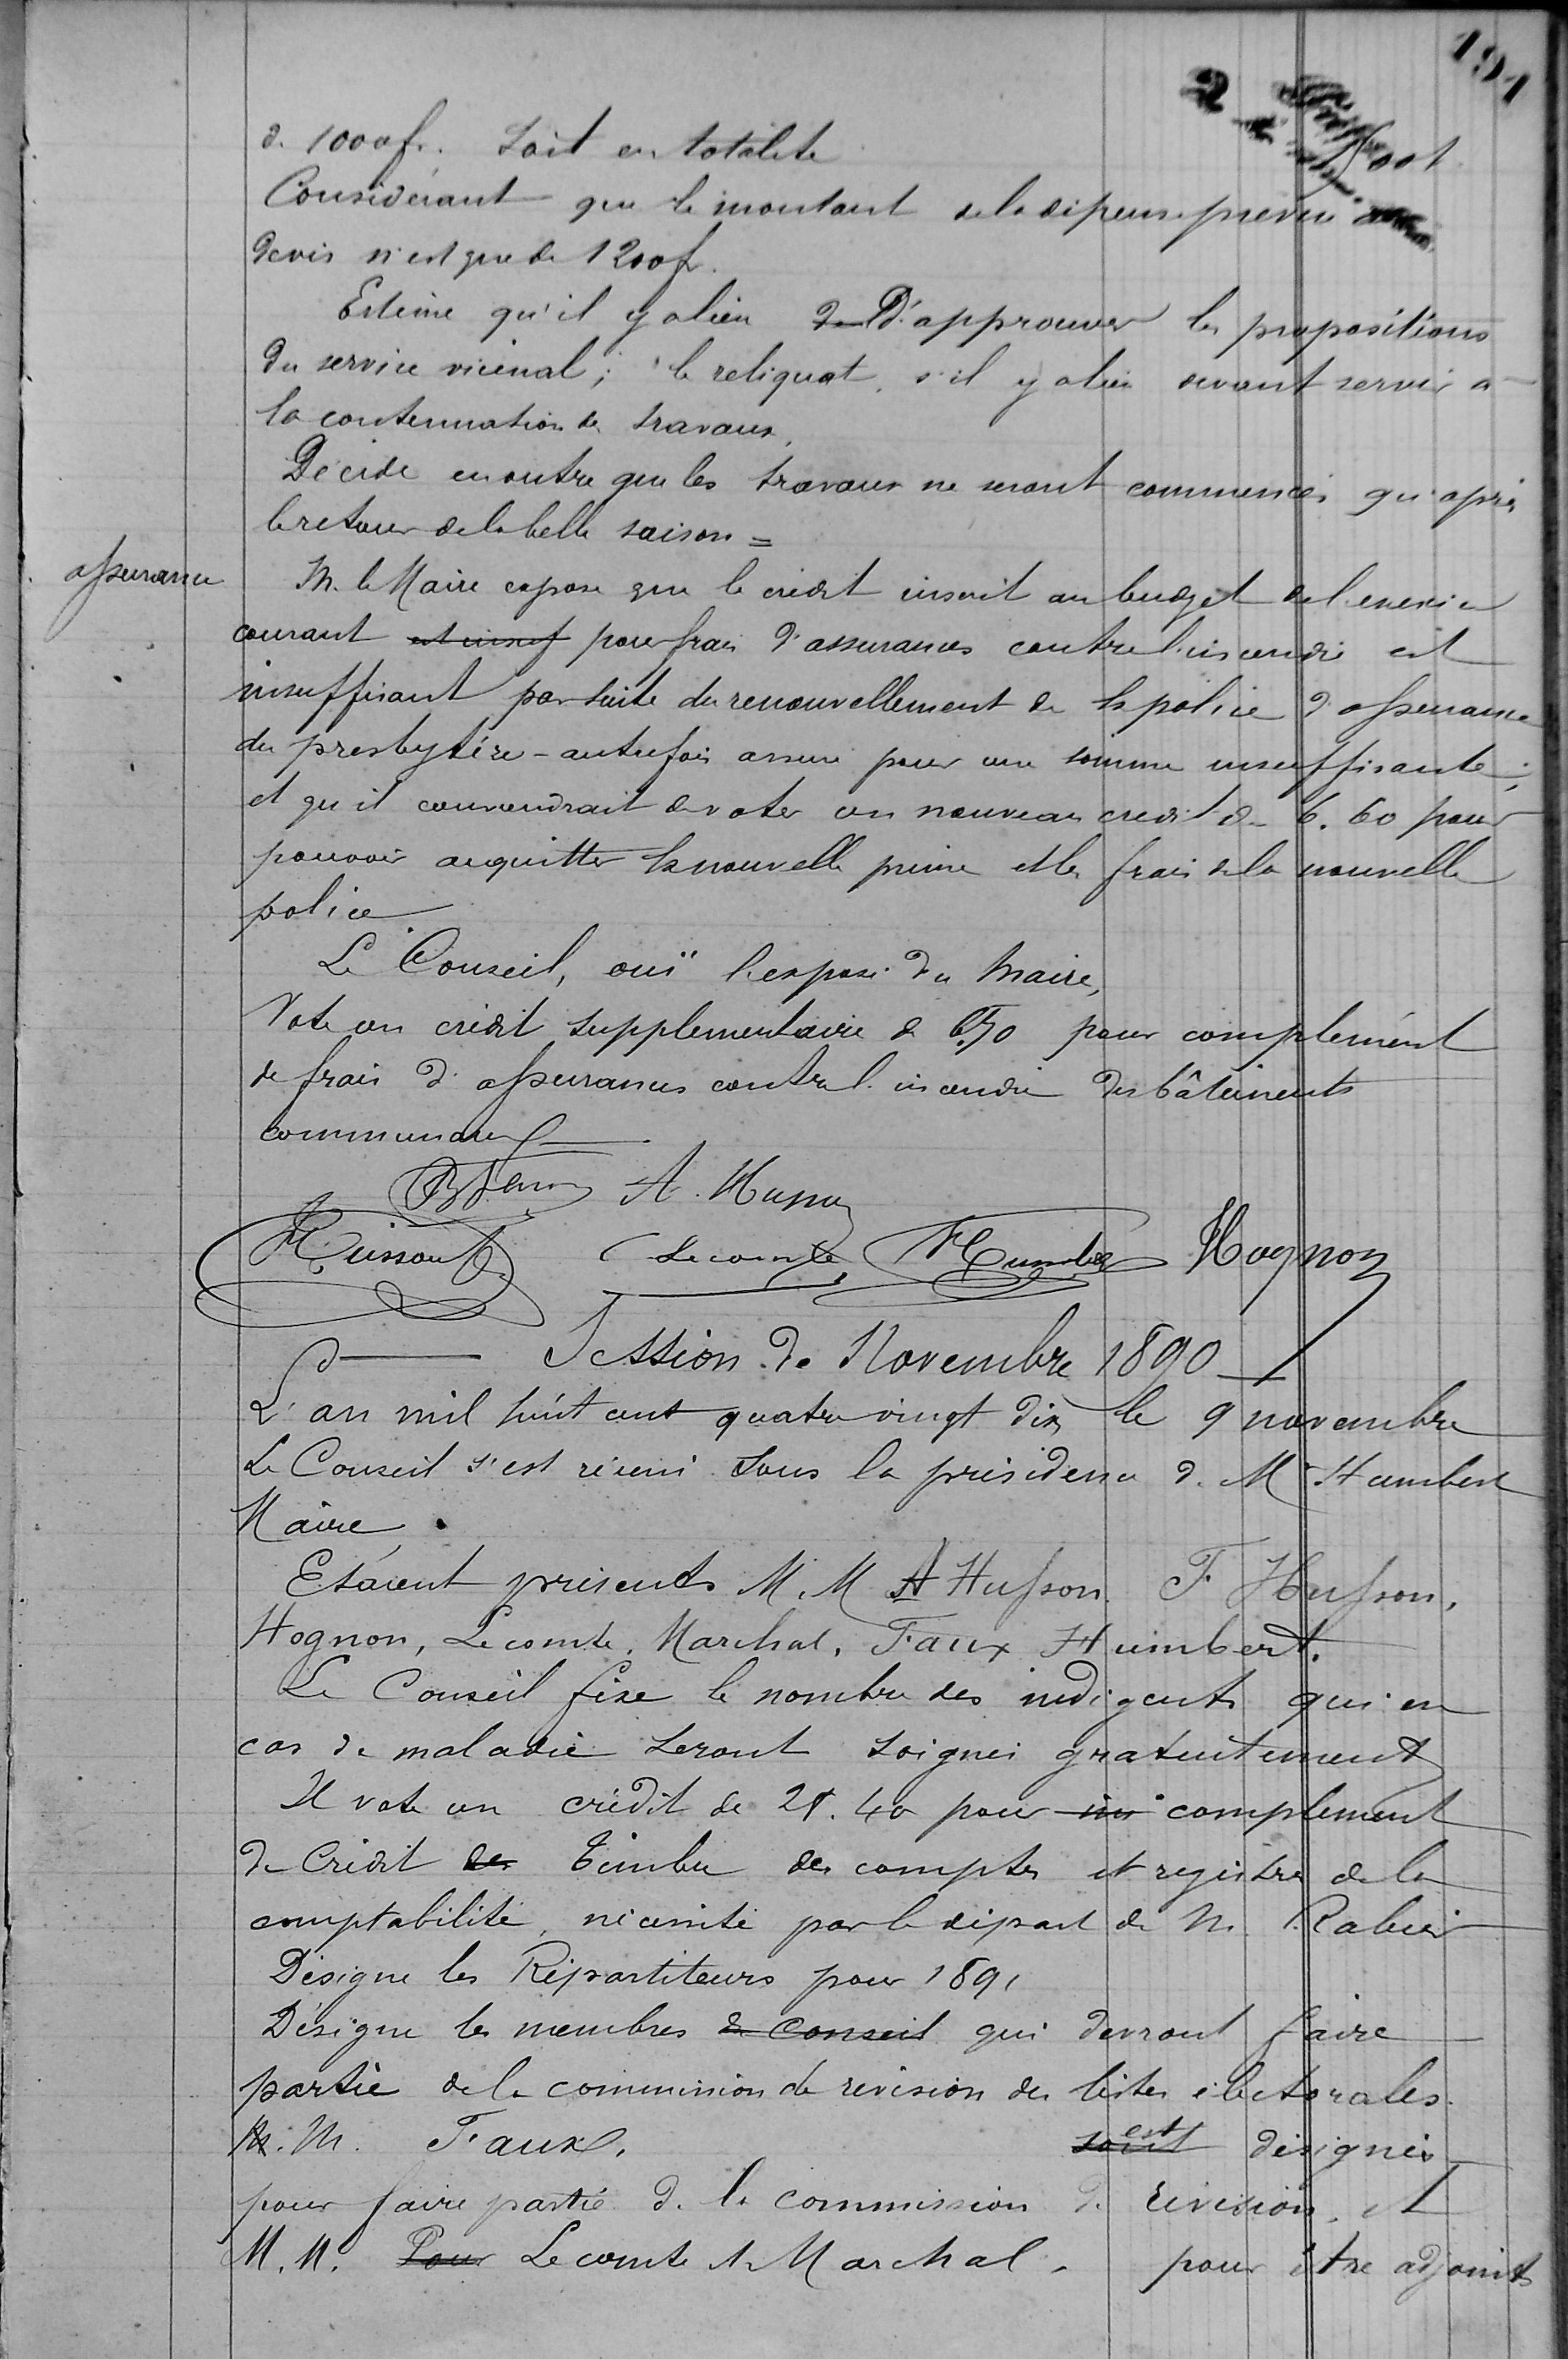 191
de 1000f. soit en totalité
Considérant que le montant de la dépense prévue
devis n'est que de 1200f.
Estime qu'il y a lieu de D'approuver les propositions
du service vicinal ; le reliquat, s'il y a lieu devant servir à
la continuation des travaux.
Décide en outre que les travaux ne seront commencés qu'après
le retour de la belle saison =
assurance
M. le Maire expose que le crédit inscrit au budget de l'exercice
courant est insuf pour frais d'assurances contre l'incendie est
insuffisant par suite du renouvellement de la police d'assurance
du presbytère - autrefois assuré pour une somme insuffisante ;
et qu'il conviendrait de voter un nouveau crédit de 6.60 pour
pouvoir acquitter la nouvelle prime et les frais de la nouvelle
police.
Le Conseil, ouï l'exposé du Maire,
Vote un crédit supplémentaire de pour complément
de frais d'assurances contre l'incendie des bâtiments
communaux
A. Husson
Lecomte Humbert Hognon
Session de Novembre 1890
L'an mil huit cent quatre vingt dix le 9 novembre
Le Conseil s'est réuni sous la présidence de Mr Humbert
Maire.
Etaient présents M.M A Husson. F Husson,
Hognon, Lecomte, Marchal, Faux Humbert.
Le Conseil fixe le nombre des indigents qui en
cas de maladie seront soignés gratuitement
Il vote un crédit de 2f.40 pour complément
de Crédit des Timbre des comptes et registres de la
comptabilité, nécessité par le départ de M. Rabier
Désigne les Répartiteurs pour 1891
Désigne les membres de Conseil qui devront faire
partie de la commission de révision des listes électorales.
M. M. Faux, sont est désignés
pour faire partie de la commission de révision, et
M. M. Pour Lecomte et Marchal, pour être adjoints